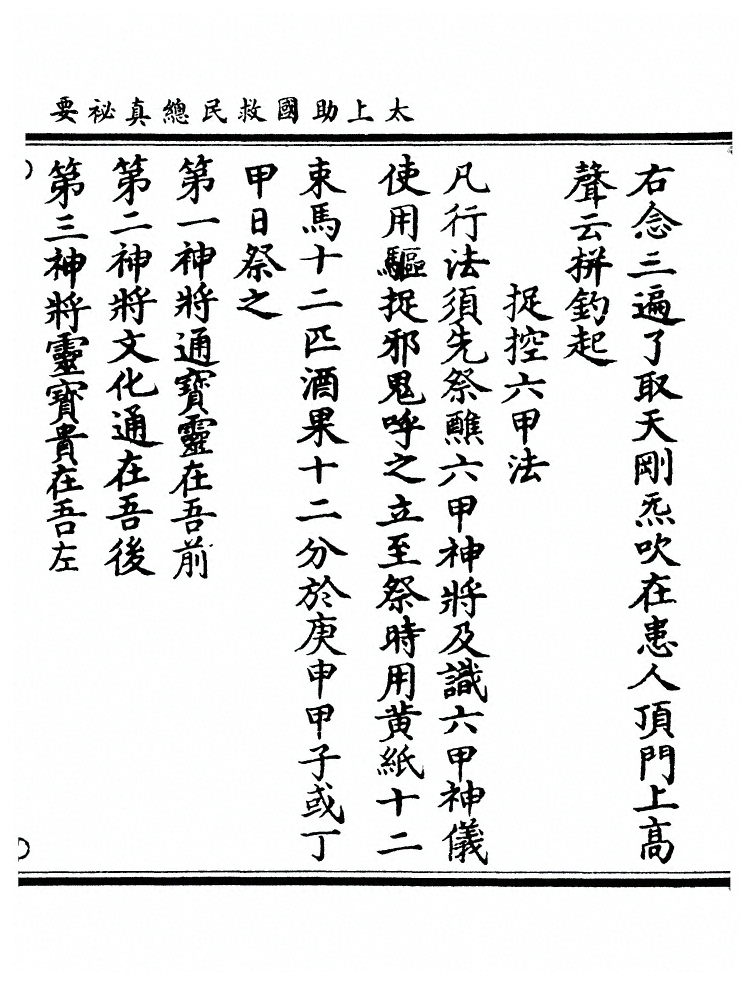 太上助國救民總真祕要
右念三遍了取天剛炁吹在患人頂門上高
聲云拼釣起
捉控六甲法
凡行法須先祭醮六甲神將及識六甲神儀
使用驅捉邪鬼呼之立至祭時用黄紙十二
束馬十二匹酒果十二分於庚申甲子或丁
甲日祭之
第一神將通寶靈在吾前
第二神將文化通在吾後
第三神將靈寶貴在吾左